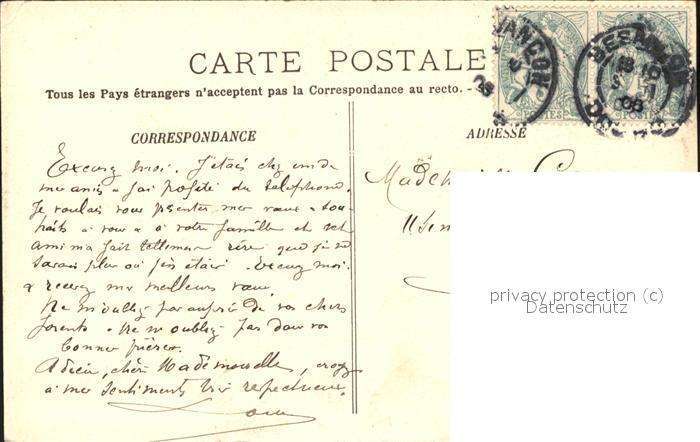 CARTE POSTALE
Tous les Pays étrangers n'acceptent pas la Correspondance au recto. -
CORRESPONDANCE
Excusez moi. J'étais chez un de
mes amis & j'ai profité du téléphone.
Je voulais vous présenter mes vœux & sou-
haits à vous & à votre famille & cet
ami m'a fait tellement rire que je ne
savais plus où j'en étais. Excusez moi.
& recevez mes meilleurs vœux.
Ne m'oubliez pas auprès de vos chers
parents. Ne m'oubliez pas dans vos
bonnes prières.
Adieu, chère Mademoiselle, croyez
à mes sentiments très respectueux.
ADRESSE
BESANÇON
POSTES
POSTES
privacy protection (c)
Datenschutz